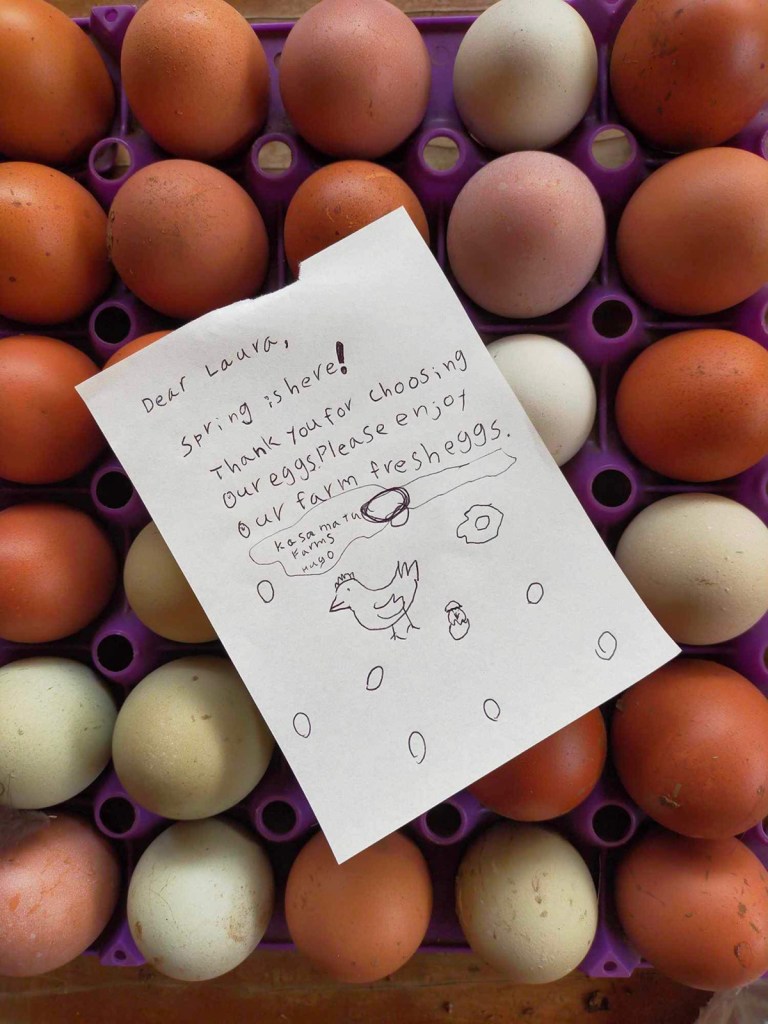 Dear Laura,
Spring is here!
Thank you for choosing
our eggs. Please enjoy
our farm fresh eggs.
Kasama
Farms
Hugo